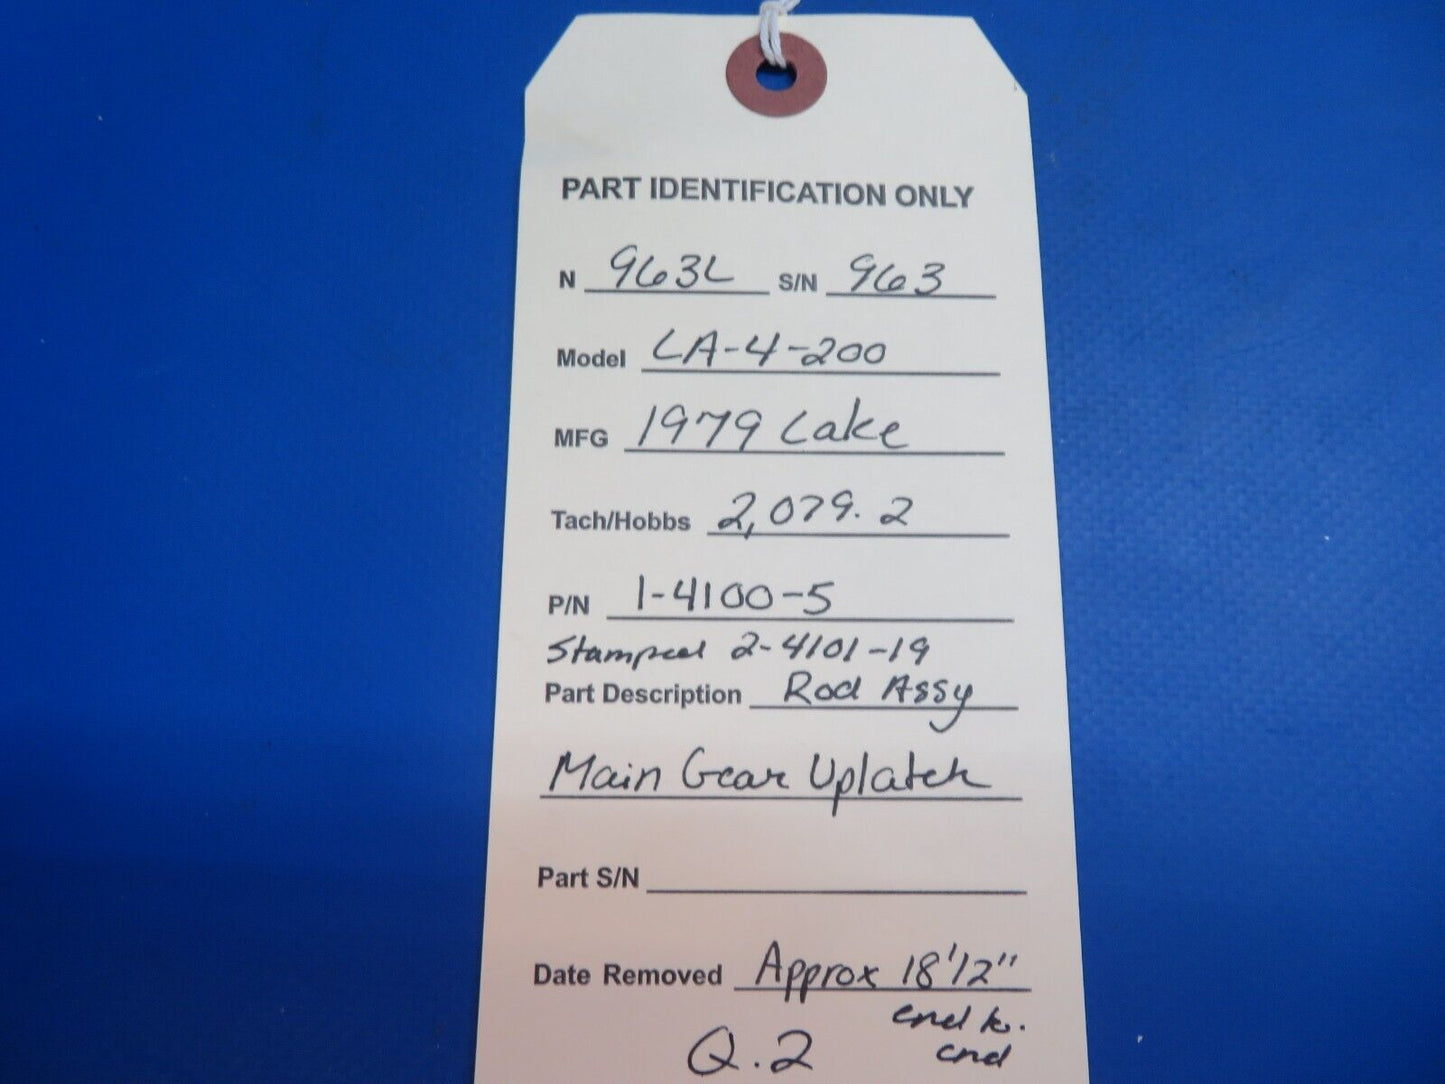 PART IDENTIFICATION ONLY
N 963L S/N 963
Model LA-4-200
MFG 1979 Lake
Tach/Hobbs 2,079.2
P/N 1-4100-5
Stamped 2-4101-19
Part Description Rod Assy
Main Gear Uplatch
Part S/N
Date Removed Approx 18'12"
end to.
end
Q.2